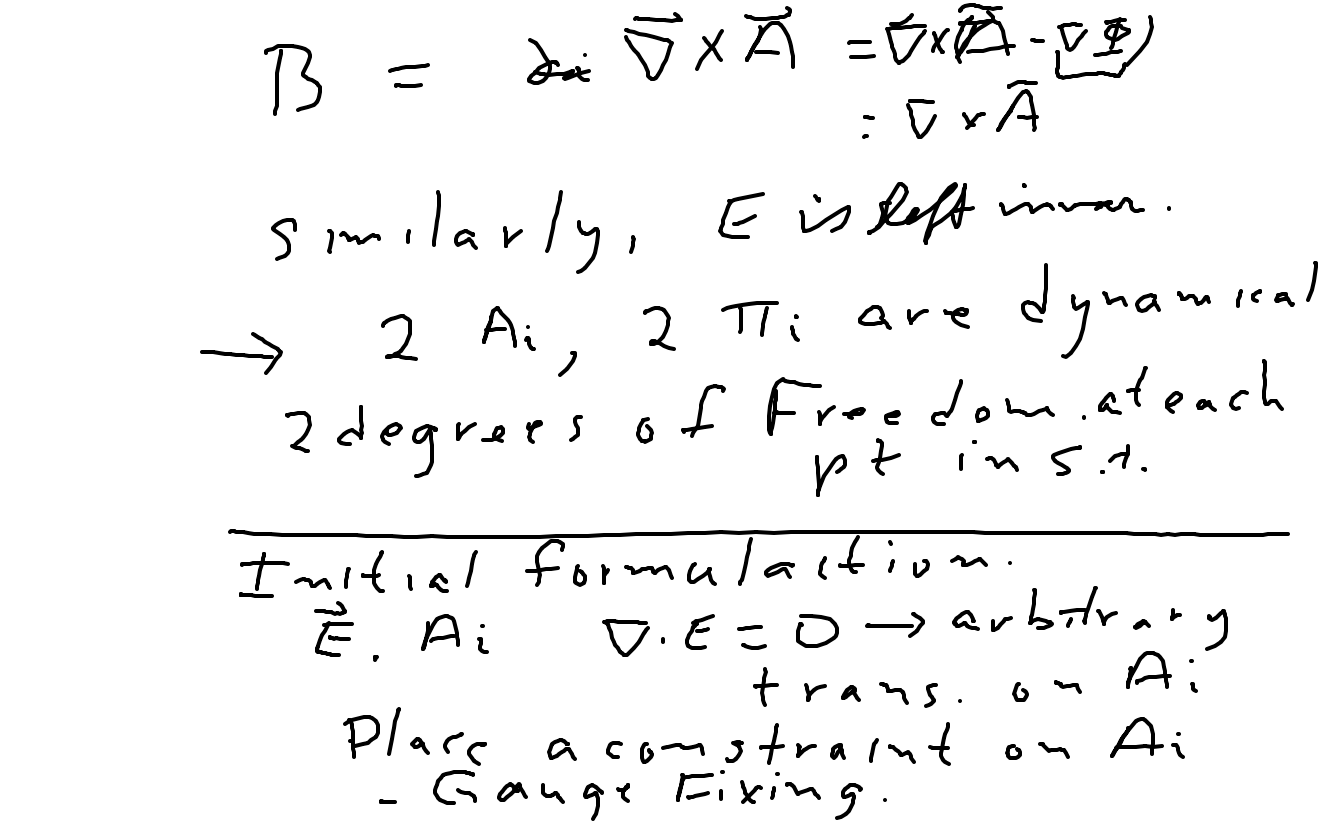 B = ∇⃗ × A⃗ = ∇⃗ × (A⃗ - ∇Φ)
= ∇ × A⃗
similarly, E is left invar.
→ 2 Ai, 2 Πi are dynamical
2 degrees of Freedom. at each
pt in s.t.
Initial formulaction.
E⃗, Ai ∇·E = 0 → arbitrary
trans. on Ai
Place a constraint on Ai
- Gauge Fixing.